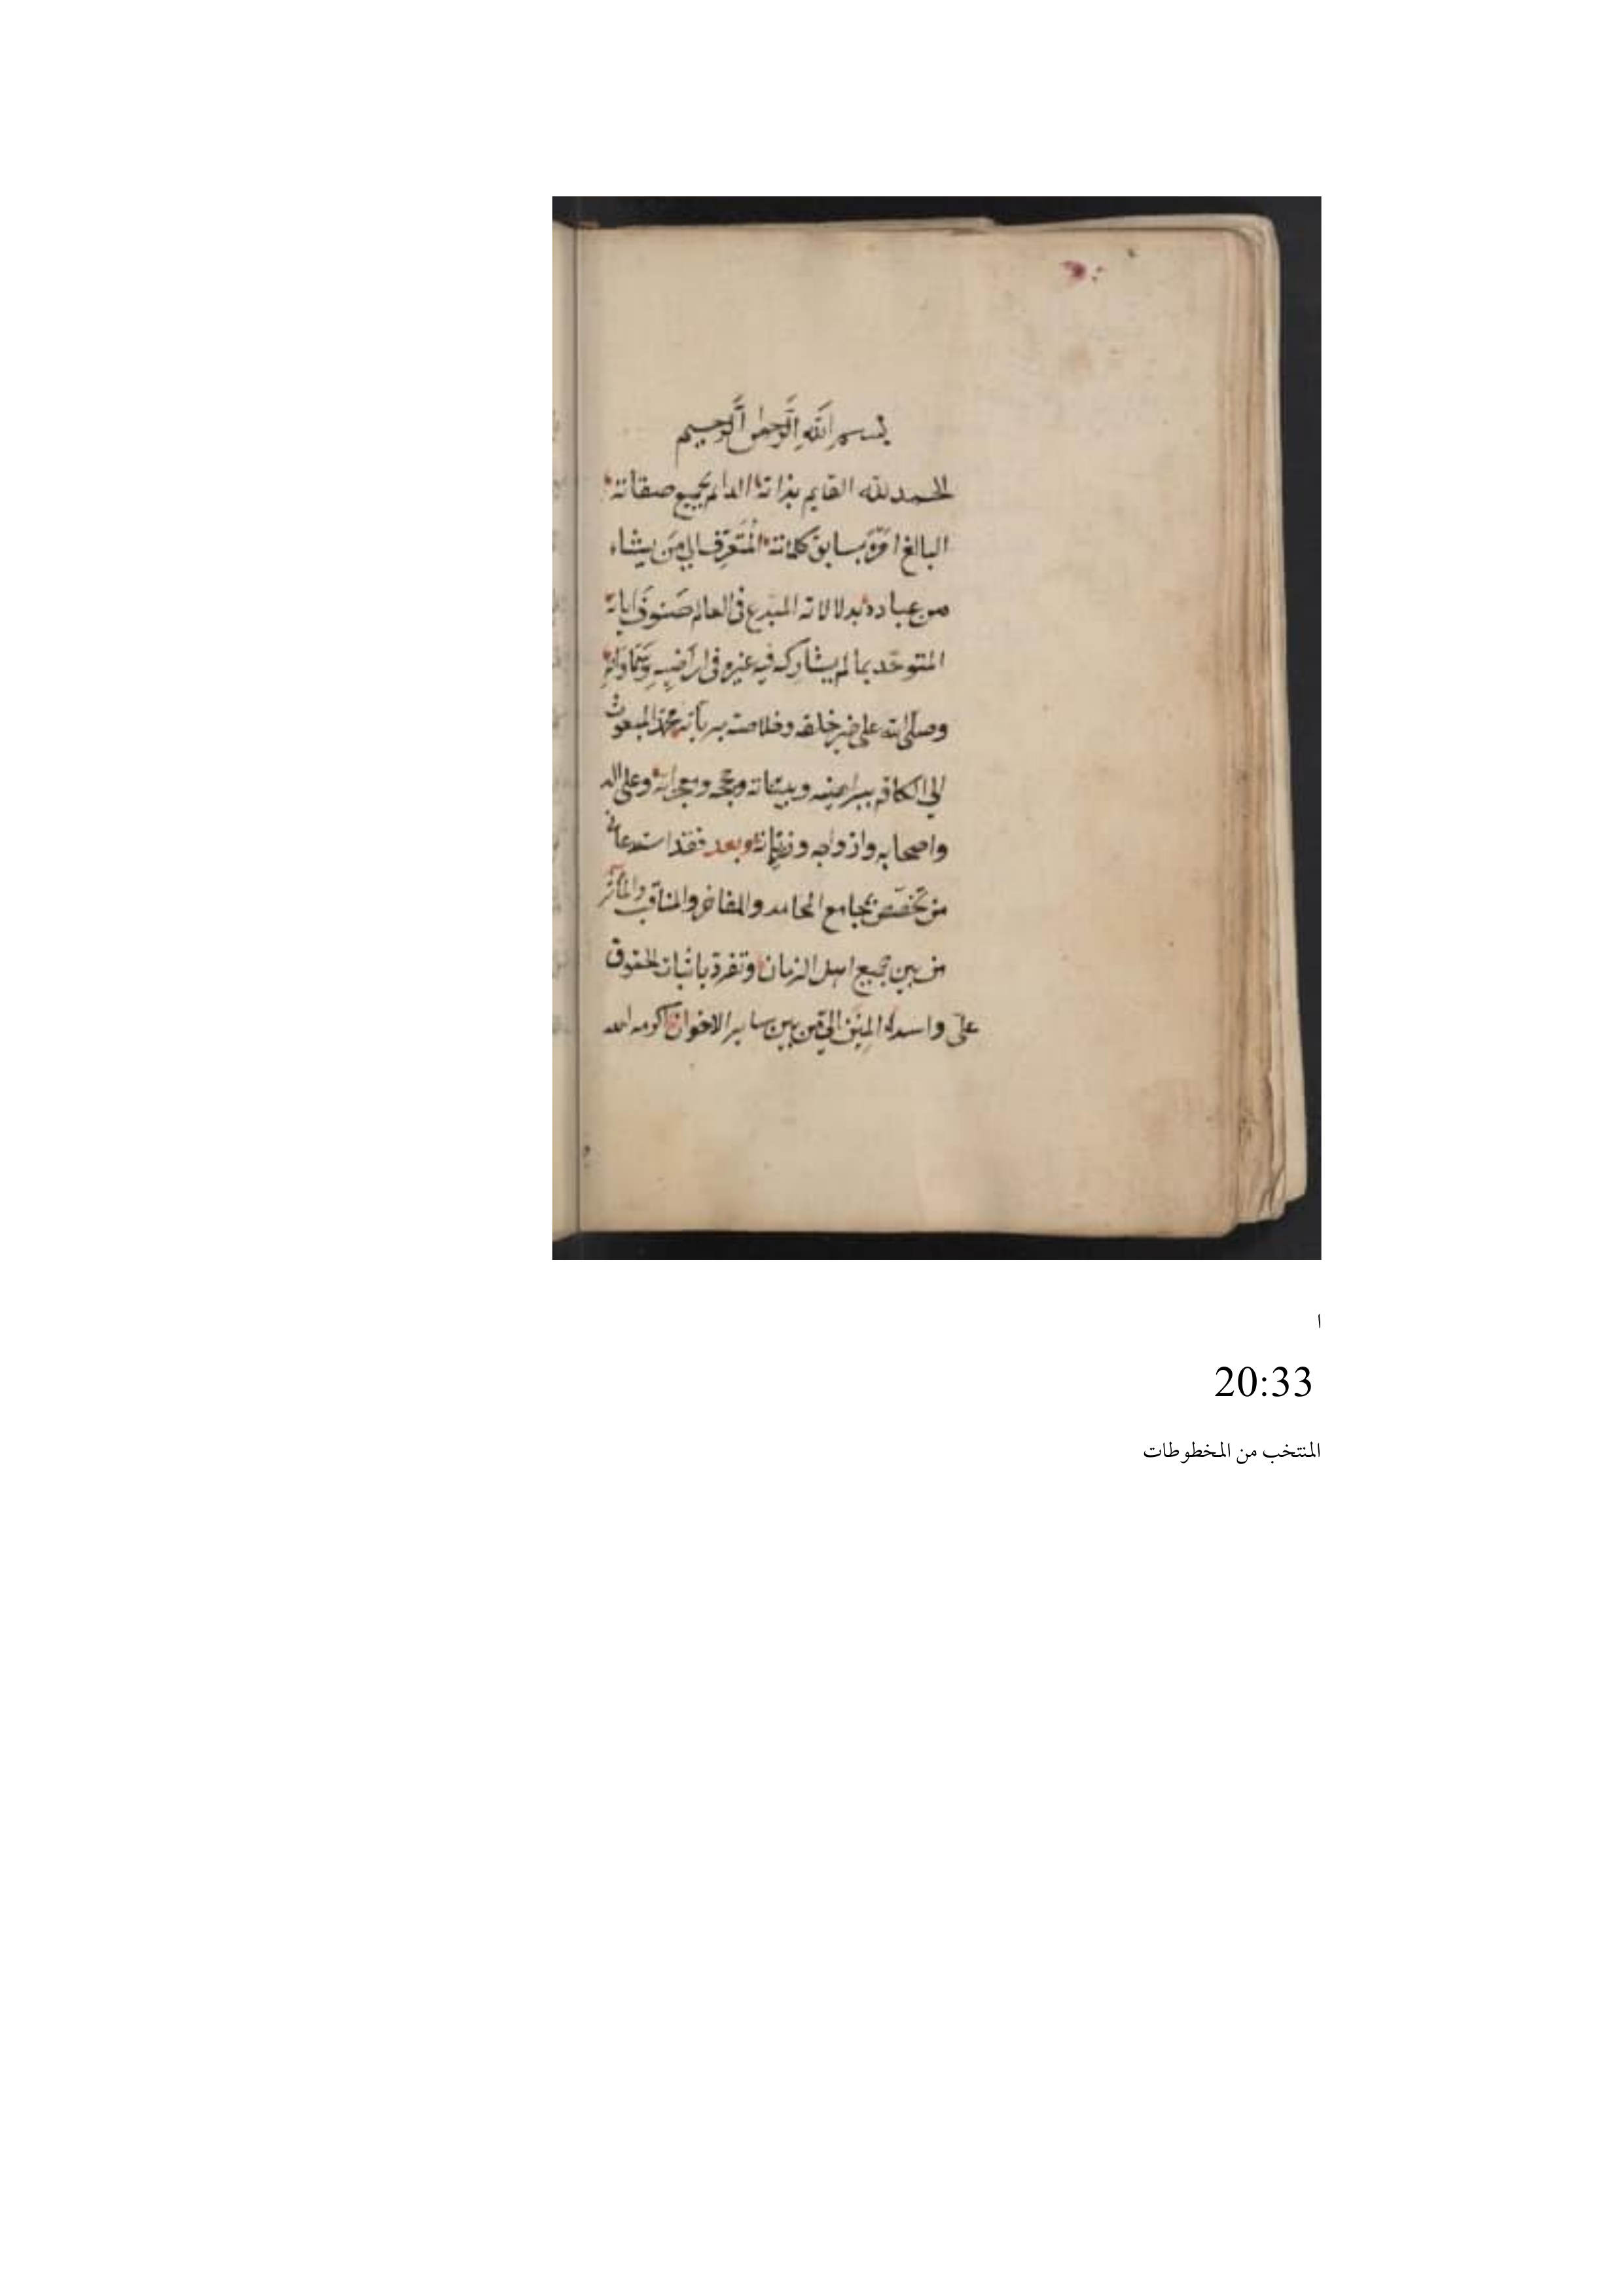 بسم اللَّه الرَّحمن الرَّحيم
الحمد لله القايم بذاته الدايم بجميع صفاته
البالغ امره بسابق كلماته المتعرف الي من يشاء
من عباده بدلالاته المبدع فى العالم صنوف اياته
المتوحد بما لم يشاركه فيه غيره فى اراضيه وسماواته
وصلى الله على خير خلقه وخلاصة برياته محمد المبعوث
الي الكافه ببراهينه وبيناته وحججه ومعجزاته وعلى اله
واصحابه وازواجه وذرياته وبعد فقد استدعانى
من تخصص بمجامع المحامد والمفاخر والمناقب والمآثر
من بين جميع اهل الزمان وتفرد باثبات الحقوق
على واسداء المنن الي من بين ساير الاخوان اكرمه الله
ا
20:33
المنتخب من المخطوطات